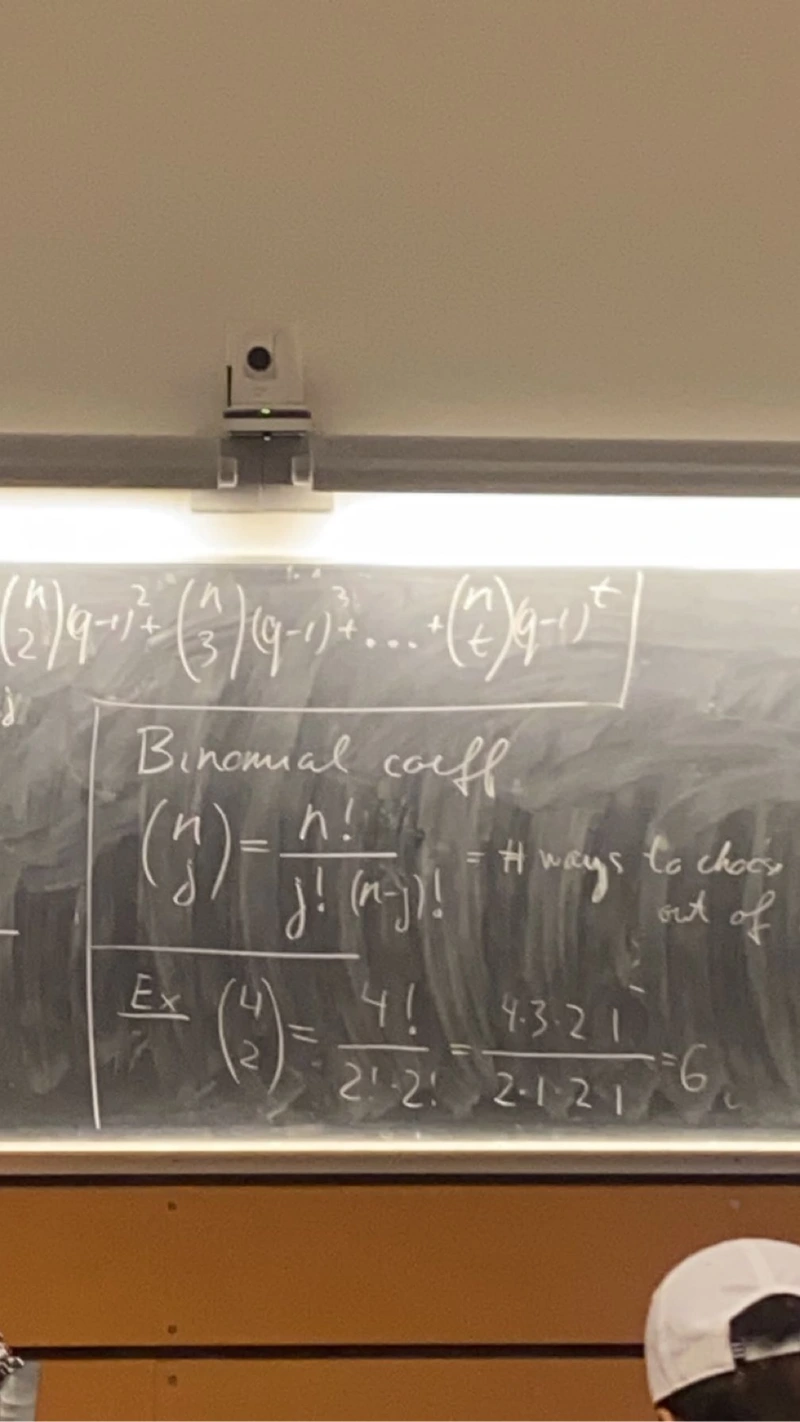 (n 2)(q-1)^2 + (n 3)(q-1)^3 + .... + (n t)(q-1)^t
j
Binomial coeff
(n j) = n! / j! (n-j)! = # ways to choos
out of
Ex (4 2) = 4! / 2!·2! = 4·3·2 1 / 2·1·2 1 = 6